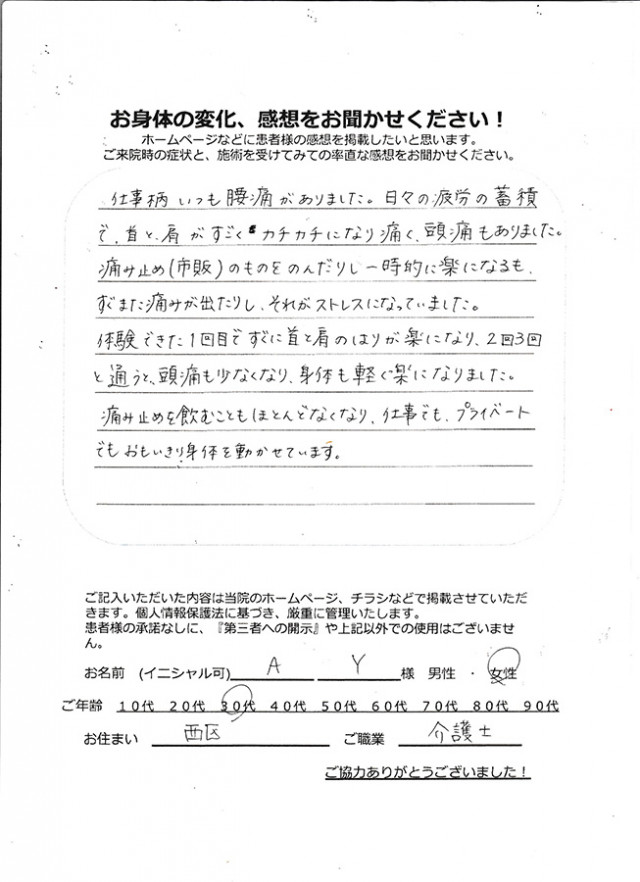 お身体の変化、感想をお聞かせください！
ホームページなどに患者様の感想を掲載したいと思います。
ご来院時の症状と、施術を受けてみての率直な感想をお聞かせください。
仕事柄いつも腰痛がありました。日々の疲労の蓄積
で、首と、肩がすごくカチカチになり痛く、頭痛もありました。
痛み止め(市販)のものをのんだりし一時的に楽になるも、
すぐまた痛みが出たりし、それがストレスになっていました。
体験できた1回目ですぐに首と肩のはりが楽になり、2回3回
と通うと、頭痛も少なくなり、身体も軽く楽になりました。
痛み止めを飲むこともほとんどなくなり、仕事でも、プライベート
でもおもいきり身体を動かせています。
ご記入いただいた内容は当院のホームページ、チラシなどで掲載させていただ
きます。個人情報保護法に基づき、厳重に管理いたします。
患者様の承諾なしに、『第三者への開示』や上記以外での使用はございませ
ん。
お名前 (イニシャル可) A Y 様 男性 ・ 女性
ご年齢 10代 20代 30代 40代 50代 60代 70代 80代 90代
お住まい 西区 ご職業 介護士
ご協力ありがとうございました！